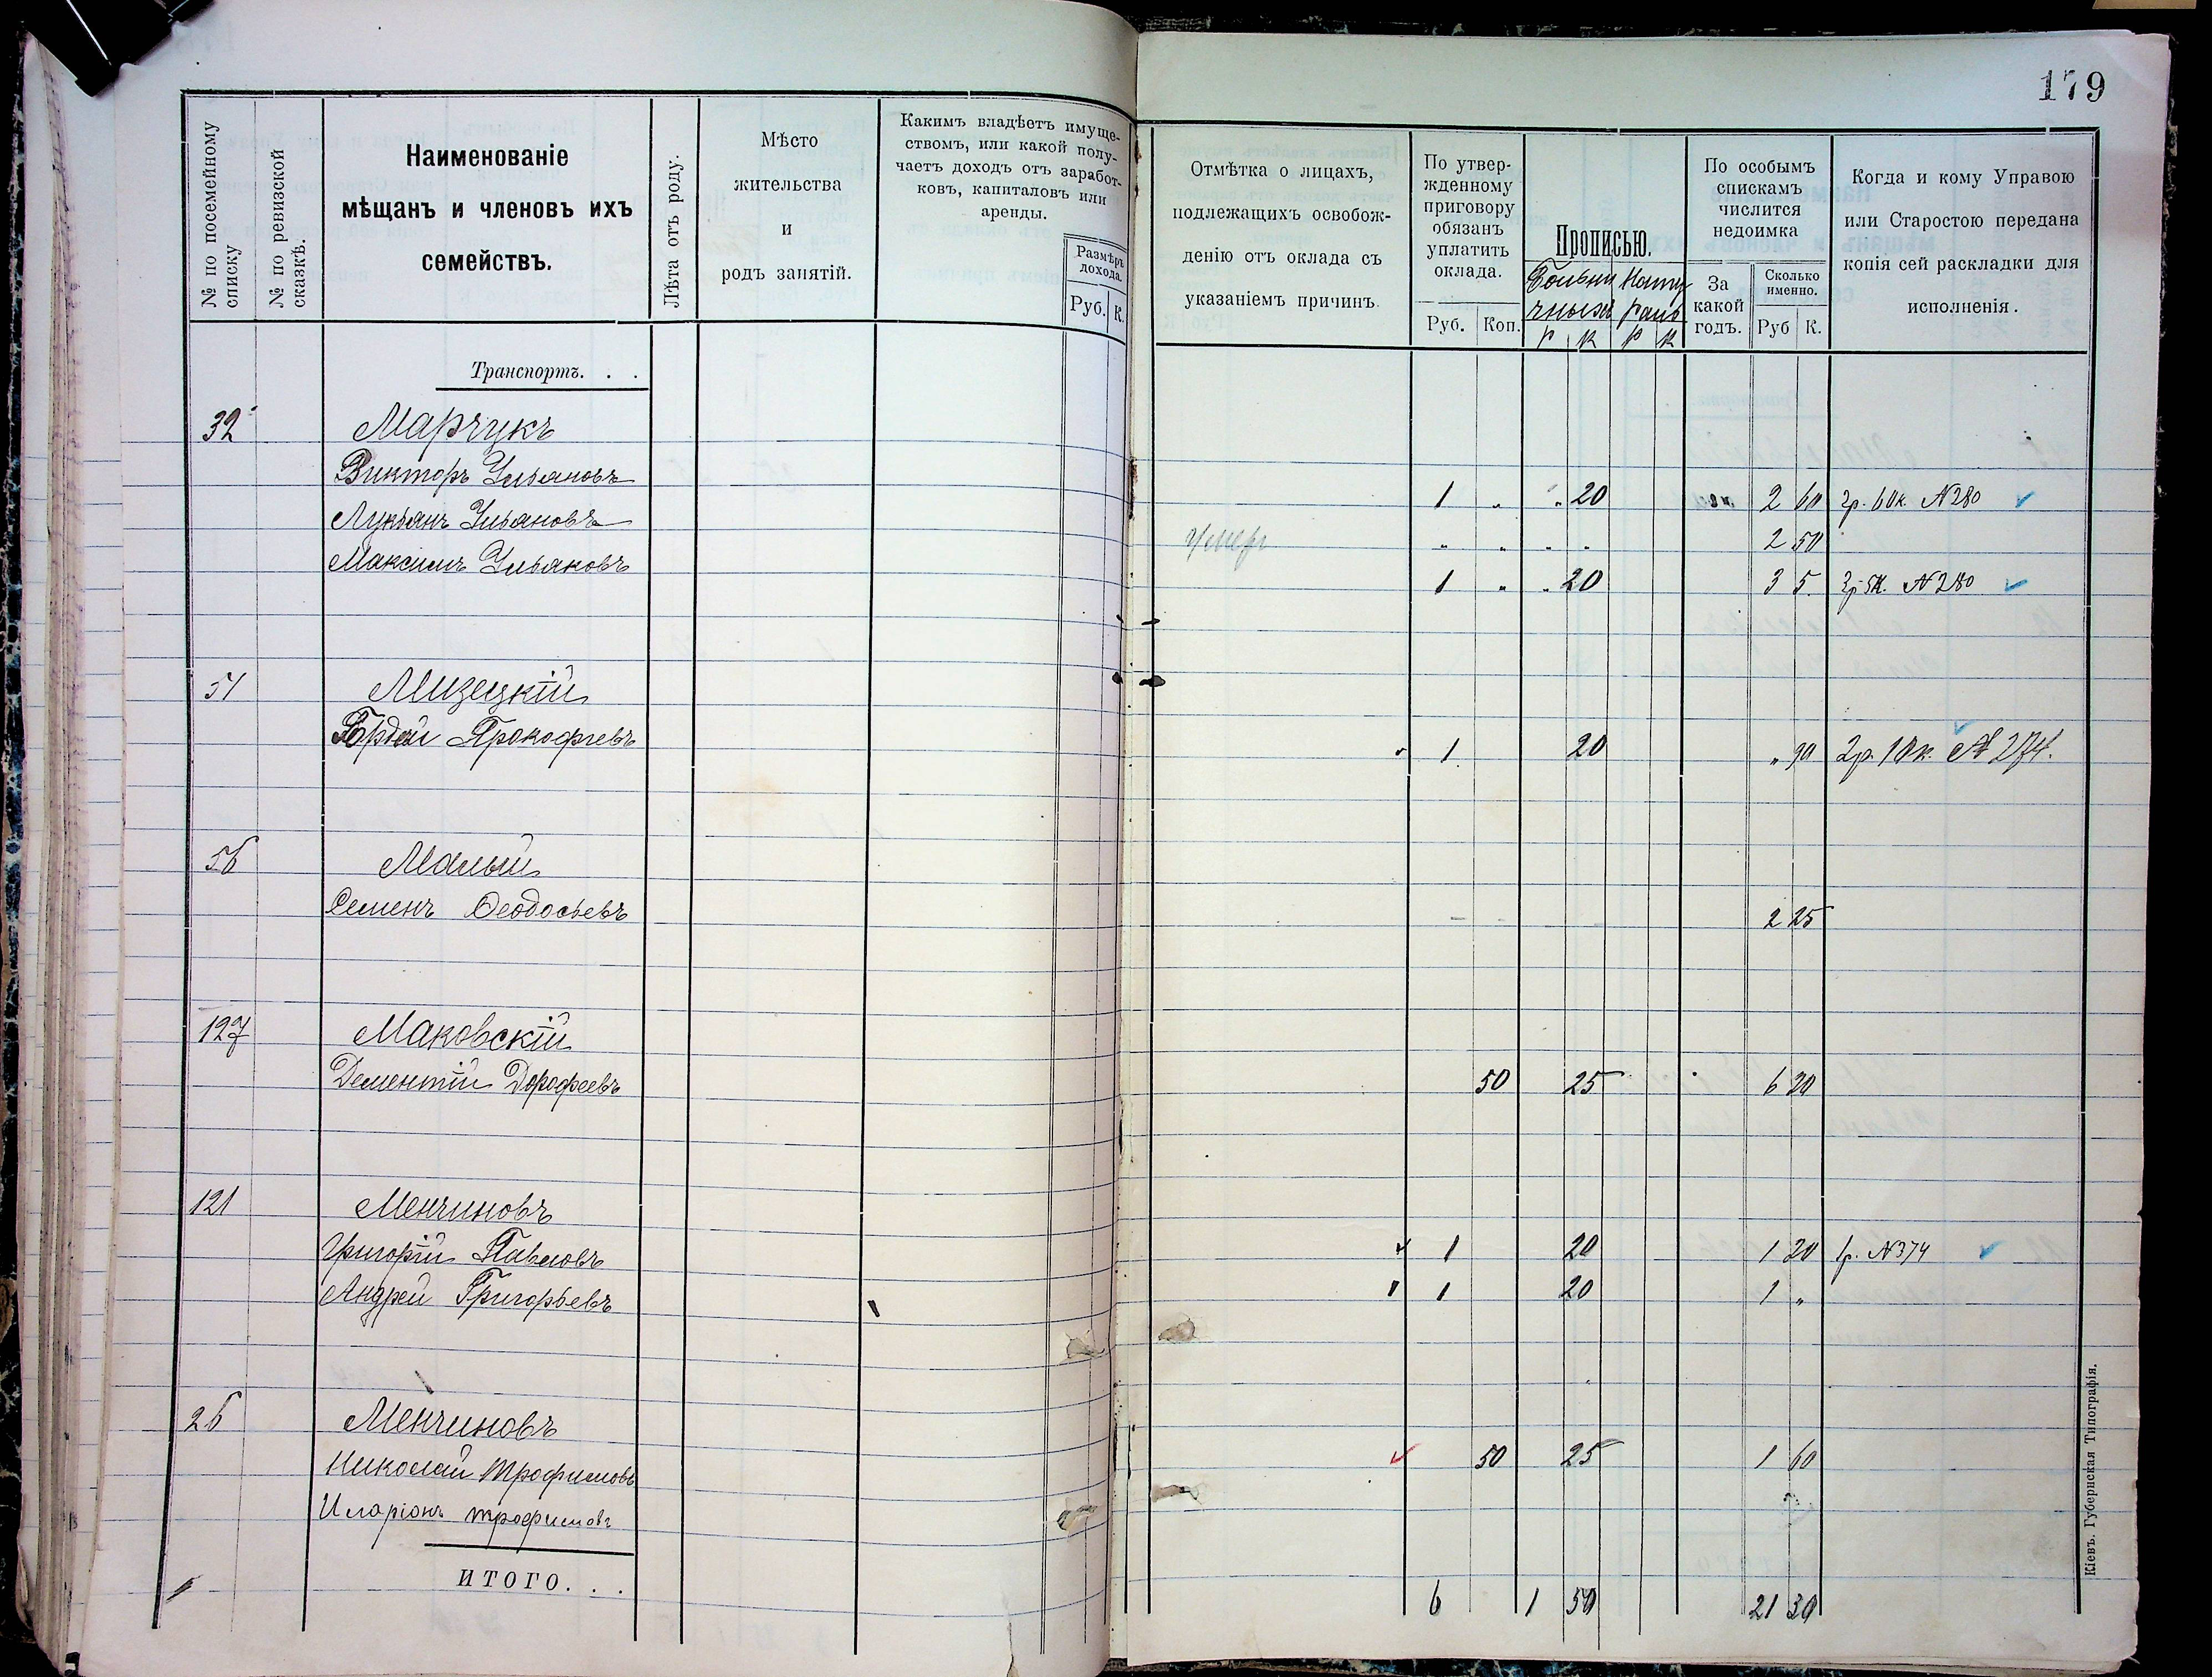 179
№ по посемейному списку
№ по ревизской сказкѣ.
Наименованіе
мѣщанъ и членовъ ихъ
семействъ.
Лѣта отъ роду.
Мѣсто
жительства
и
родъ занятій.
Какимъ владѣетъ имуще-
ствомъ, или какой полу-
чаетъ доходъ отъ заработ-
ковъ, капиталовъ или
аренды.
Размѣръ
дохода.
Руб. К.
Отмѣтка о лицахъ,
подлежащихъ освобож-
денію отъ оклада съ
указаніемъ причинъ
По утвер-
жденному
приговору
обязанъ
уплатить
оклада.
Руб. Коп.
Прописью.
Больни Нату
чныхъ раль
р к р к
По особымъ
спискамъ
числится
недоимка
За
какой
годъ.
Сколько
именно.
Руб К.
Когда и кому Управою
или Старостою передана
копія сей раскладки для
исполненія.
Транспортъ. . .
32 Марчукъ
Викторъ Ульяновъ 1 „ „ 20 2 60 2р. 60к. №280
Лукьянъ Ульяновъ Умеръ „ „ „ „ 2 50
Максимъ Ульяновъ 1 „ „ 20 3 5 3р 5к. №280
51 Мизецкій
Гордей Прокофьевъ 1 20 „ 90 2р. 10к. № 274.
56 Малый
Семенъ Ѳеодосьевъ 2 25
127 Маковскій
Дементій Дорофеевъ 50 25 6 20
121 Менчиновъ
Григорій Павловъ 1 20 1 20 1р. №374
Андрей Григорьевъ 1 20 1 „
26 Менчиновъ
Николай Трофимовъ 50 25 1 60
Иларіонъ Трофимовъ
ИТОГО. . . 6 1 50 21 30
Кіевъ. Губернская Типографія.